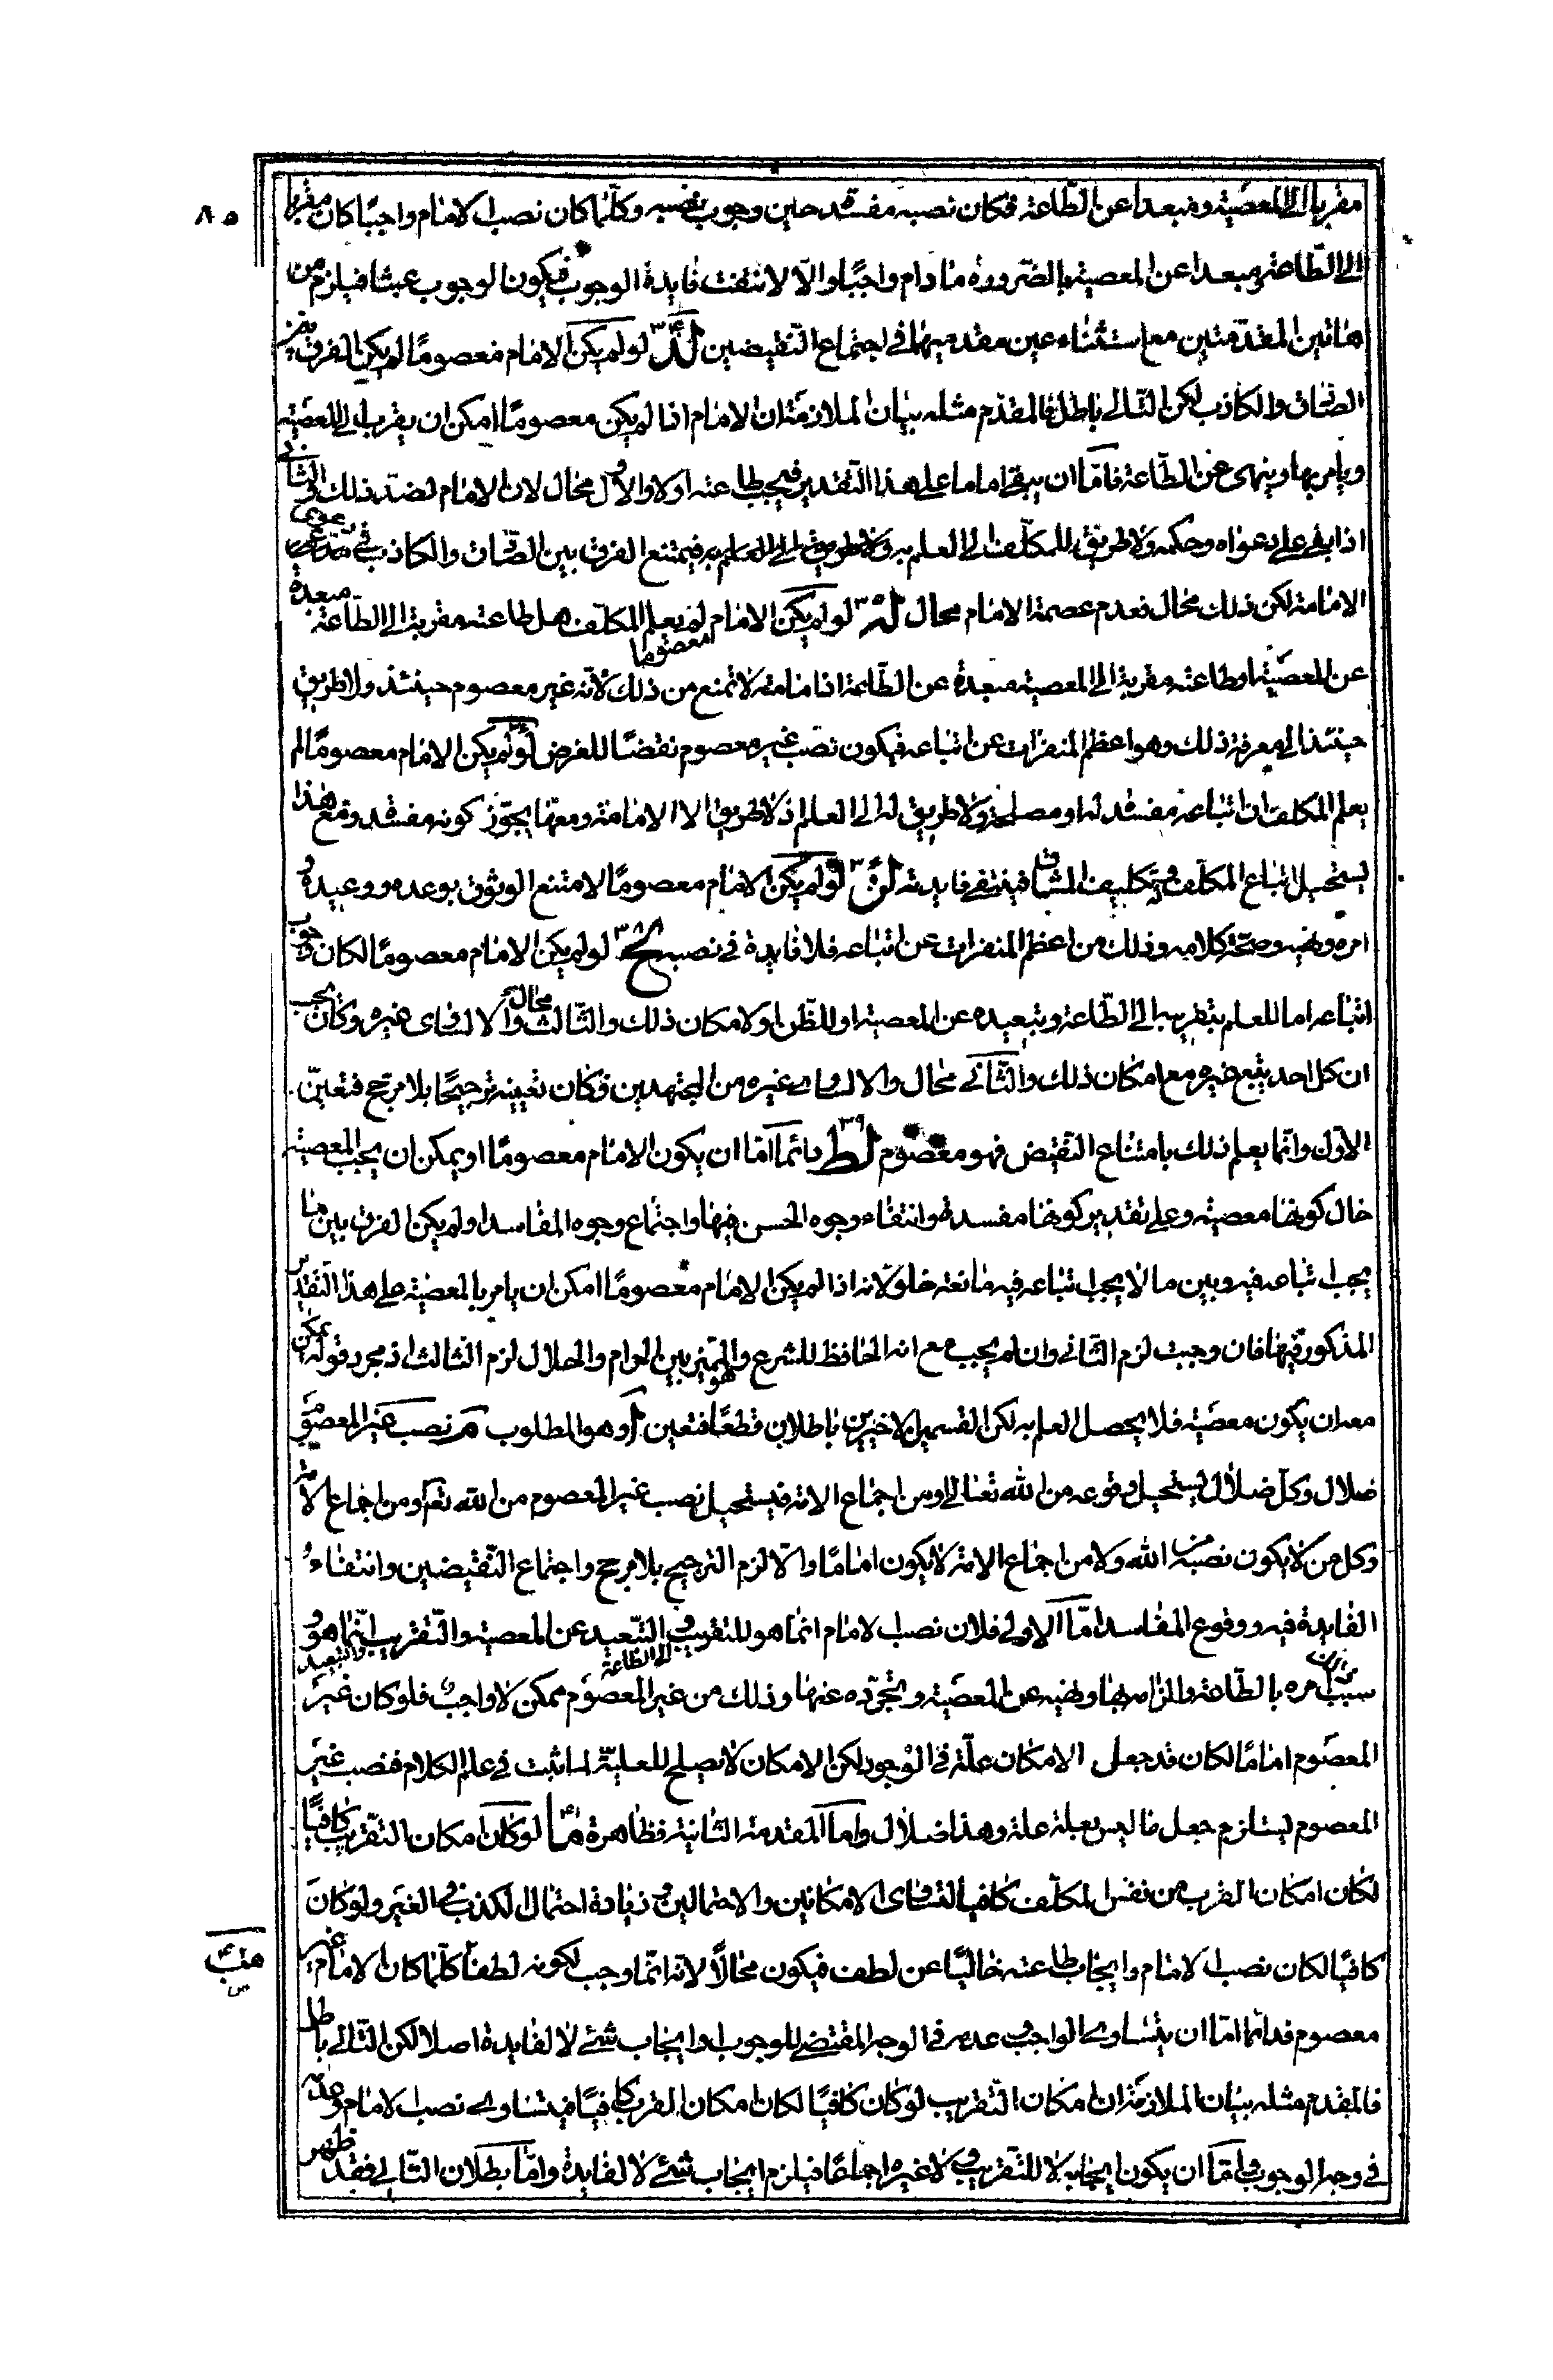 مقربا الى المعصية ومبعدا عن الطاعة فكان نصبه مفسدة حين وجوب نصبه وكلما كان نصب الامام واجبًا كان مقربا
الى الطاعة ومبعدا عن المعصية بالضرورة ما دام واجبًا والا لانتفت فايدة الوجوب فيكون الوجوب عبثا فيلزم من
هاتين المقدمتين مع استثناء عين مقدميهما في اجتماع النقيضين لد ٣٤ لو لم يكن الامام معصومًا لم يكن الفرق بين
الصادق والكاذب لكن التالى باطل فالمقدم مثله بيان الملازمة ان الامام اذا لم يكن معصومًا امكن ان يقرب الى المعصية
ويامر بها وينهى عن الطاعة فاما ان يبقى اماما على هذا التقدير فيجب طاعته او لا والاول محال لان الامام لضد ذلك والثانى
اذا بقى على دعواه وحكمه ولا طريق للمكلف الى العلم به ولا طريق الى العلم به فيمتنع الفرق بين الصادق والكاذب في دعوى
الامامة لكن ذلك محال فعدم عصمة الامام محال له ٣٥ لو لم يكن الامام معصوما لم يعلم المكلف هل طاعته مقربة الى الطاعة مبعدة
عن المعصية او طاعته مقربة الى المعصية مبعدة عن الطاعة اذا امامته لا تمنع من ذلك لانه غير معصوم حينئذ ولا طريق
حينئذ الى معرفة ذلك وهو اعظم المنفرات عن اتباعه فيكون نصب غير معصوم نقضًا للغرض لو ٣٦ لو لم يكن الامام معصومًا لم
يعلم المكلف ان اتباعه مفسدة له او مصلحة ولا طريق له الى العلم اذ لا طريق الا الامامة ومعها يجوز كونه مفسدة ومع هذا
يستحيل اتباع المكلف وتكليف المشاق فينتفى فايدته لز ٣٧ لو لم يكن الامام معصومًا لامتنع الوثوق بوعده ووعيده و
امره ونهيه وصحة كلامه وذلك من اعظم المنفرات عن اتباعه فلا فايدة في نصبه لح ٣٨ لو لم يكن الامام معصومًا لكان وجوب
اتباعه اما للعلم بتقريبه الى الطاعة وتبعيده عن المعصية او للظن او لامكان ذلك والثالث محال والا لساوى غيره وكان يجب
ان كل احد يتبع غيره مع امكان ذلك والثانى محال والا لساوى غيره من المجتهدين فكان تعيينه ترجيحًا بلا مرجح فتعين
الاول وانما يعلم ذلك بامتناع النقيض فهو معصوم لط ٣٩ دائما اما ان يكون الامام معصومًا او يمكن ان يجب المعصية
حال كونها معصية وعلى تقدير كونها مفسدة وانتفاء وجوه الحسن فيها واجتماع وجوه المفاسد او لم يكن الفرق بين ما
يجب اتباعه فيه وبين ما لا يجب اتباعه فيه مانعة خلو لانه اذا لم يكن الامام معصومًا امكن ان يامر بالمعصية على هذا التقدير
المذكور فيها فان وجبت لزم الثانى وان لم يجب مع انه الحافظ للشرع وهو المميز بين الحرام والحلال لزم الثالث اذ مجرد قوله يمكن
معه ان يكون معصية فلا يحصل العلم به لكن القسمين الاخيرين باطلان قطعًا فتعين الاول وهو المطلوب م نصب غير المعصوم
ضلال وكل ضلال يستحيل وقوعه من الله تعالى ومن اجماع الامة فيستحيل نصب غير المعصوم من الله تعم ومن اجماع الامة
وكل من لا يكون نصبه من الله ولا من اجماع الامة لا يكون امامًا والا لزم الترجيح بلا مرجح واجتماع النقيضين وانتفاء
الفايدة فيه ووقوع المفاسد اما الاولى فلان نصب الامام انما هو للتقريب الى الطاعة والتبعيد عن المعصية والتقريب والتبعيد انما هو
بسبب امره بالطاعة والزامه بها ونهيه عن المعصية وتجرده عنها وذلك من غير المعصوم ممكن لا واجب فلو كان غير
المعصوم امامًا لكان قد جعل الامكان علة في الوجود لكن الامكان لا يصلح للعلية لما ثبت في علم الكلام فنصب غير
المعصوم يستلزم جعل ما ليس بعلة علة وهذا ضلال واما المقدمة الثانية فظاهرة ما ٤١ لو كان امكان التقريب كافيًا
لكان امكان القرب من نفس المكلف كافيا لتساوى الامكانين والاحتمالين وزيادة احتمال الكذب في الغير ولو كان
كافيًا لكان نصب الامام وايجاب طاعته خاليًا عن لطف فيكون محالًا لانه انما وجب لكونه لطفا مب ٤٢ كلما كان الامام غير
معصوم فدائما اما ان يتساوى الواجب وعدمه في الوجه المقتضى للوجوب او ايجاب شئ لا لفايدة اصلا لكن التالى باطل
فالمقدم مثله بيان الملازمة ان امكان التقريب لو كان كافيًا لكان امكان القرب كافيًا فيتساوى نصب الامام وعدمه
في وجه الوجوب واما ان يكون ايجابه لا للتقريب ولا غيره اجماعًا فيلزم ايجاب شئ لا لفايدة واما بطلان التالى فقد ظهر